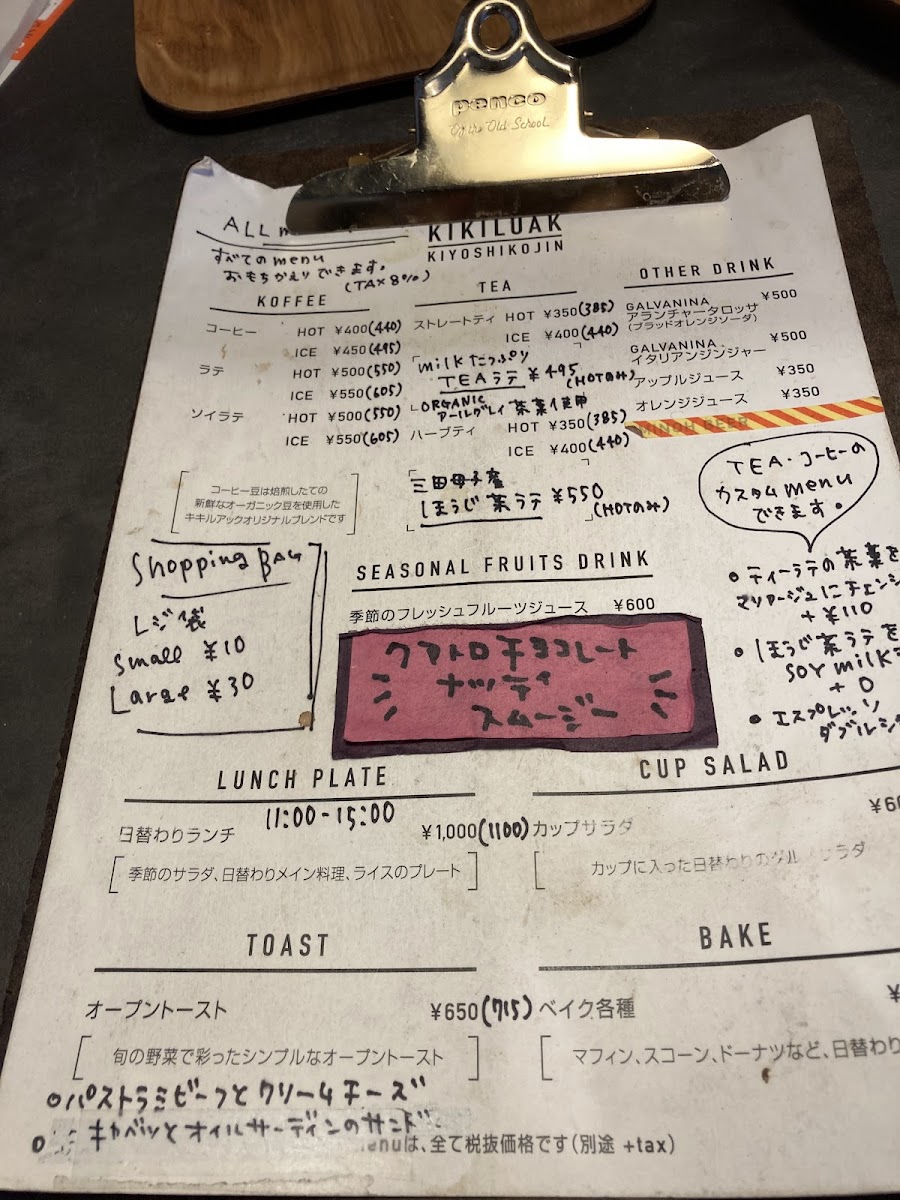 penco
Of the Old School
ALL
KIKILUAK
KIYOSHIKOJIN
すべてのmenu
おもちかえりできます。
(TAX8%)
KOFFEE
コーヒー HOT ¥400(440)
ICE ¥450(495)
ラテ HOT ¥500(550)
ICE ¥550(605)
ソイラテ HOT ¥500(550)
ICE ¥550(605)
コーヒー豆は焙煎したての
新鮮なオーガニック豆を使用した
キキルアックオリジナルブレンドです
TEA
ストレートティ HOT ¥350(385)
ICE ¥400(440)
milkたっぷり
TEAラテ ¥495
(HOTのみ)
ORGANIC
アールグレイ茶葉使用
ハーブティ HOT ¥350(385)
ICE ¥400(440)
三田母子産
ほうじ茶ラテ ¥550
(HOTのみ)
OTHER DRINK
GALVANINA ¥500
アランチャータロッサ
(ブラッドオレンジソーダ)
GALVANINA ¥500
イタリアンジンジャー
アップルジュース ¥350
オレンジジュース ¥350
MINOH BEER
TEA・コーヒーの
カスタムmenu
できます。
・ティーラテの茶葉を
マリアージュにチェンジ
+¥110
・ほうじ茶ラテを
SOY milk
+0
・エスプレッソ
ダブル
Shopping BAG
レジ袋
small ¥10
Large ¥30
SEASONAL FRUITS DRINK
季節のフレッシュフルーツジュース ¥600
クアトロチョコレート
ナッティ
スムージー
LUNCH PLATE
11:00-15:00
日替わりランチ ¥1,000(1100)
季節のサラダ、日替わりメイン料理、ライスのプレート
CUP SALAD
カップサラダ
カップに入った日替わりのグルメサラダ
TOAST
オープントースト ¥650(715)
旬の野菜で彩ったシンプルなオープントースト
・パストラミビーフとクリームチーズ
・キャベツとオイルサーディンのサンド
BAKE
ベイク各種
マフィン、スコーン、ドーナツなど、日替わり
enuは、全て税抜価格です(別途 +tax)